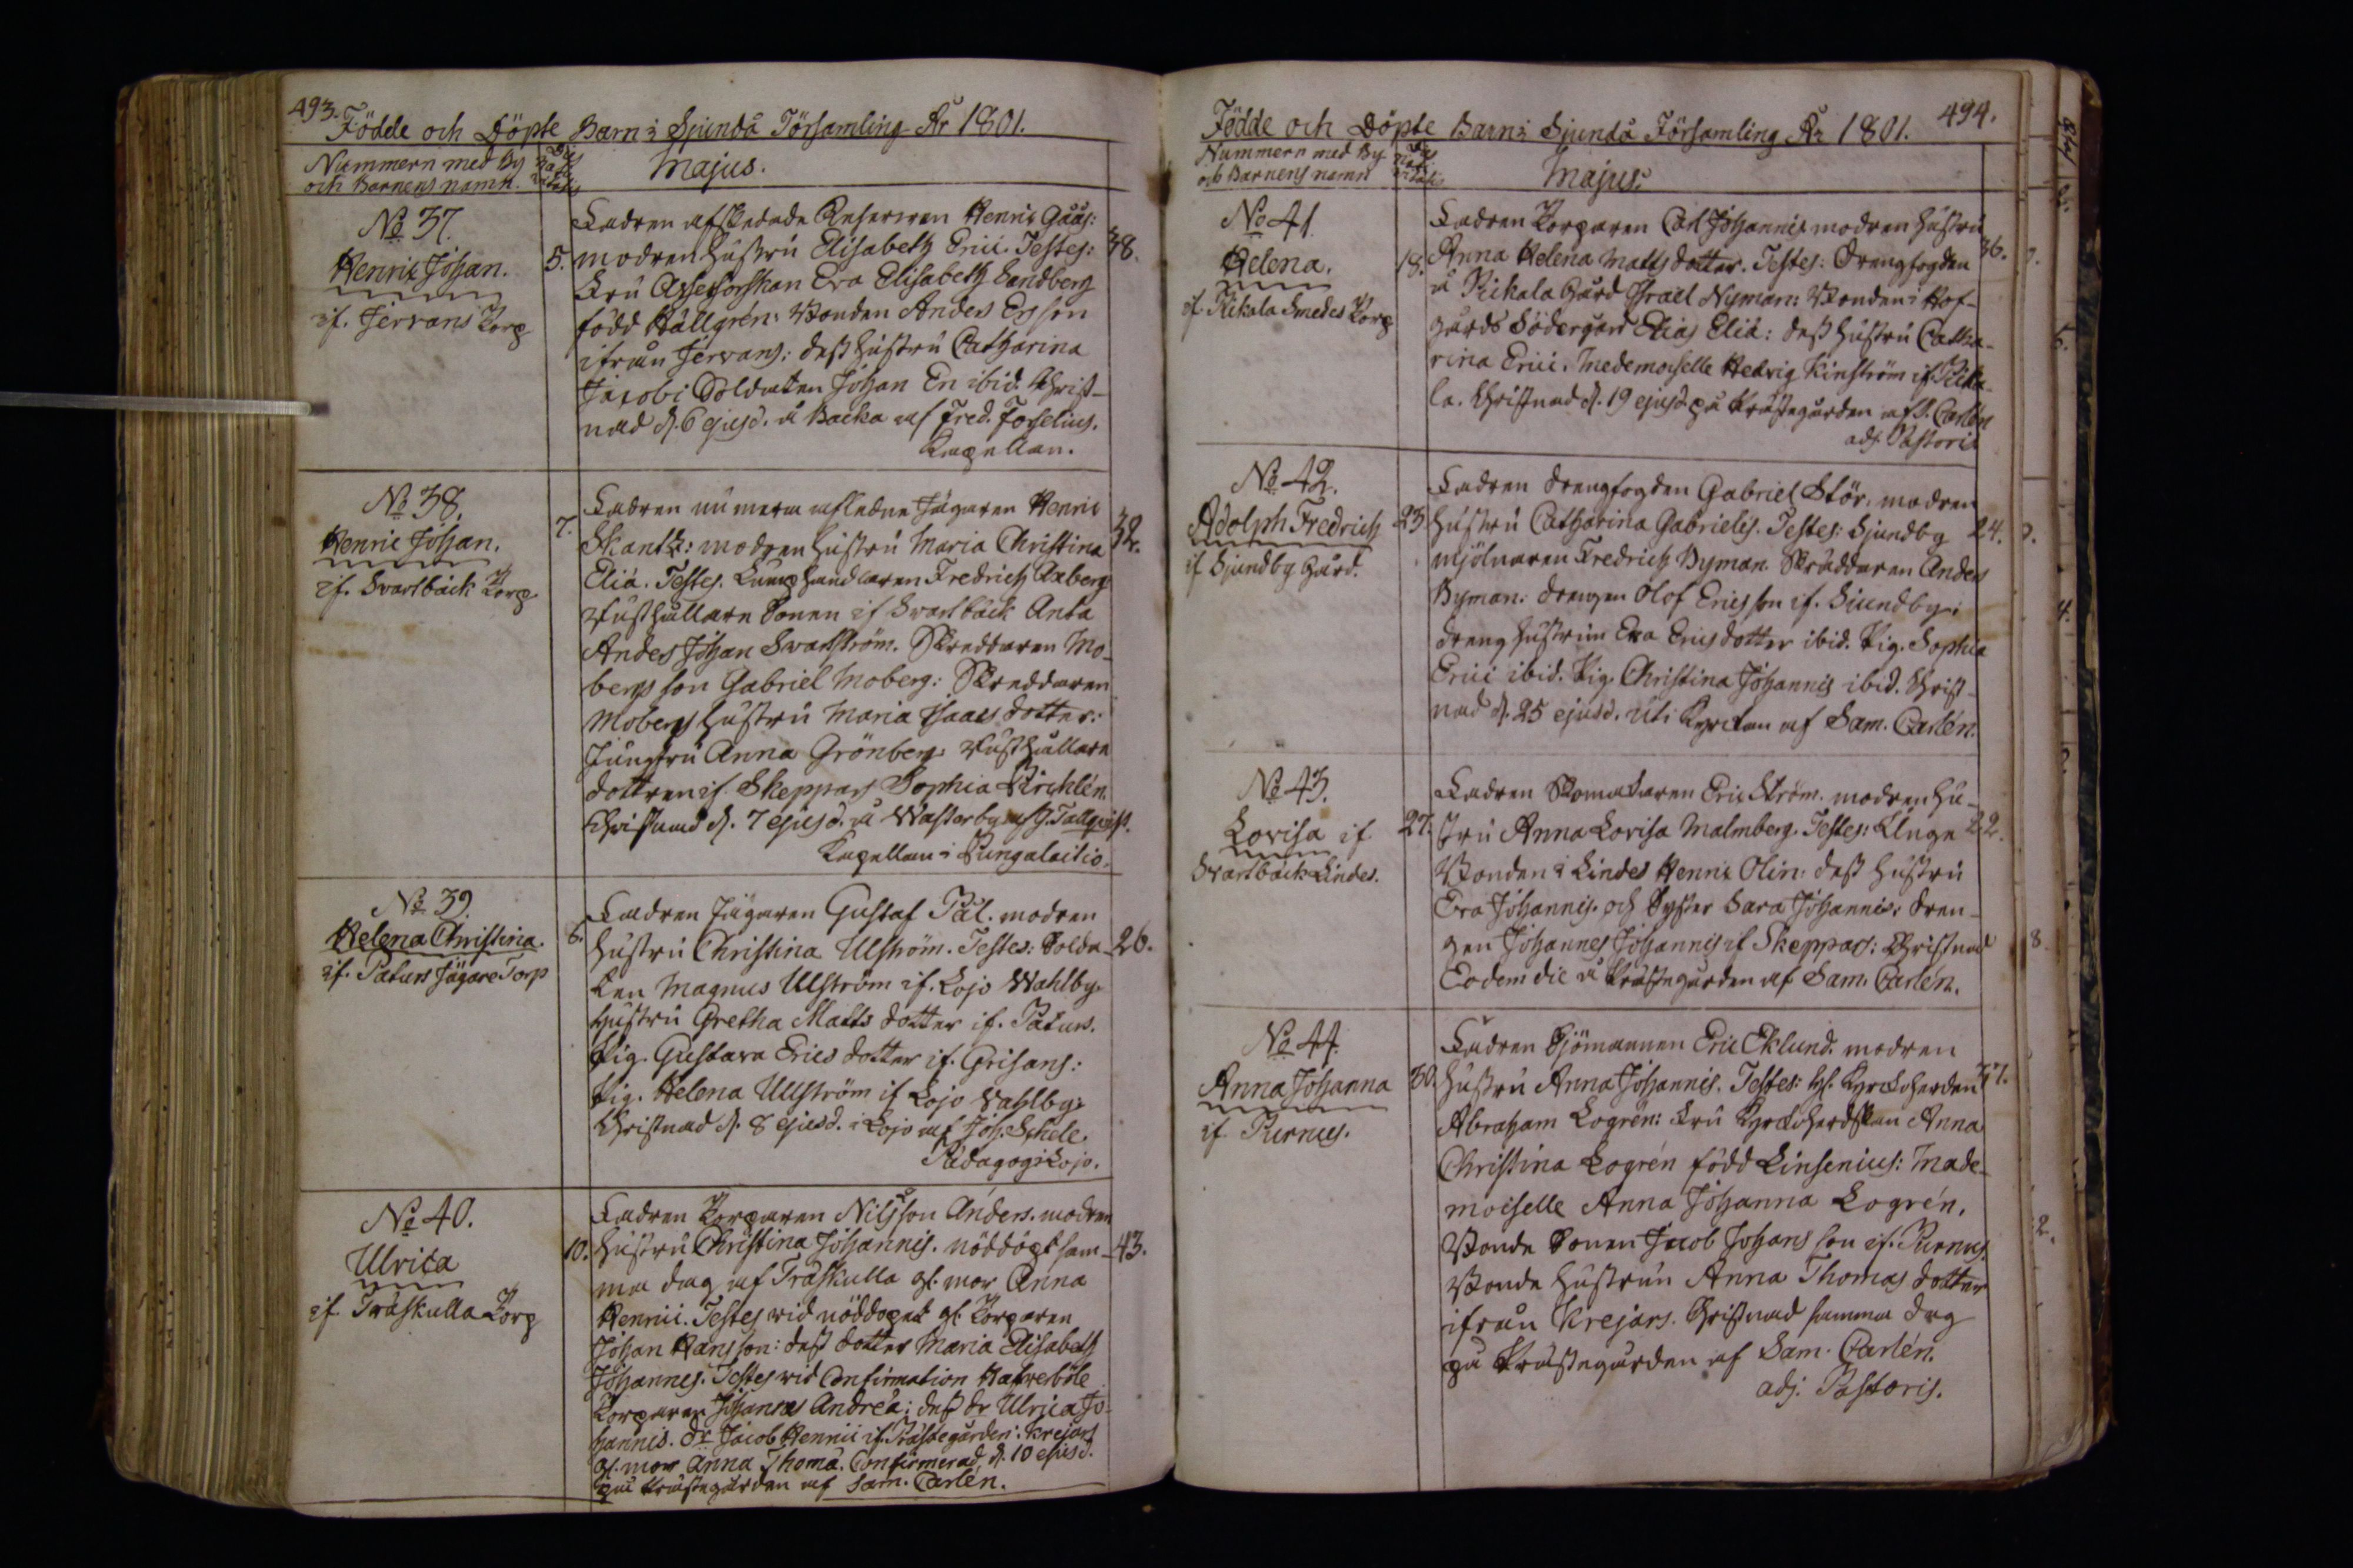 493.
Födde och Döpte Barn i Sjundå Församling År 1801.
Nummern med By
och Barnens namn.
Majus.
No 37.
Henric Johan.
if. Jervans Torp
5.
Fadren afskedade Reserven Henric Gååς:
modren hustru Elisabeth Erici. Testes:
38.
Fru Assessorskan Eva Elisabeth Sandberg
född Hällgrén: Bonden Anders Ersson
ifrån Jervans: dess hustru Catharina
Jacobi Soldaten Johan En ibid. Christ-
nad d. 6 ejusd. å Backa af Fred. Forselius.
Kapellan.
No 38.
Henric Johan.
if. Svartbäck Torp
7.
Fadren nu mera afledne Jägaren Henric
Skantz: modren hustru Maria Christina
32.
Eliæ. Testes. Kuuphandlaren Fredrich Aaberg
Rusthållare Sonen if Svartbäck Anta
Anders Johan Svartström. Skreddaren Mo-
bergs son Gabriel Moberg: Skreddaren
Mobergs hustru Maria Isaacs dotter:
Jungfru Anna Grönberg: Rusthållare
dottren if. Skeppars Sophia Kichlén.
Christnad d. 7 ejusd. å Wässerby af G. Tallqvist.
Kapellan i Pungalaitio.
No 39.
Helena Christina.
if. Paturs Jägare Torp
6.
Fadren Jägaren Gustaf Pål. modren
hustru Christina Ulström. Testes: Solda-
26.
ten Magnus Ullström if. Lojo Wahlby.
hustru Gretha Matts dotter if. Paturs.
Pig. Gustava Erics dotter if. Grisans:
Pig. Helena Ullström if Lojo Wahlby.
Christnad d. 8 ejusd. i Lojo af Joh. Schele.
Pädagog i Lojo.
No 40.
Ulrica
if Träskulla Torp
10.
Fadren Torparen Nilsson Anders. modren
hustru Christina Johannis. nöddöpt sam-
43.
ma dag af Träskulla gl. mor Anna
Henrici. Testes vid nöddopet gl. Torparen
Johan Hansson: dess dotter Maria Elisabeth
Johannis. Testes vid Confirmation Hafverböle
Torparen Johannes Andreæ: dess dr Ulrica Jo-
hannis. dr Jacob Henrici if. Prästegården: Krejars
gl. mor Anna Thomæ. Confirmerad d. 10 ejusd.
på Prästegården af Sam. Carlén.
494.
Födde och Döpte Barn i Sjundå Församling År 1801.
Nummern med By
och Barnens namn
Majus.
No 41.
Helena.
if Kikala Smedes Torp
18.
Fadren Torparen Carl Johannis modren hustru
Anna Helena Matts dotter. Testes: Drengfogden
36.
å Pickala Gård Israel Nyman: Bonden i Hof-
gårds Södergård Elias Eliæ: dess hustru Catha-
rina Erici. Medemoiselle Hedvig Kinström if. Picka-
la. Christnad d. 19 ejusd. på Prästegården af S. Carlén
adj. Pastoris
No 42.
Adolph Fredrich
if Sjundby Gård.
23
Fadren drengfogden Gabriel Stör. modren
hustru Catharina Gabrielis. Testes: Sjundby
24.
mjölnaren Fredrich Byman. Skräddaren Anders
Byman: drengen Olof Ericsson if. Sjundby:
dreng hustrun Eva Ericsdotter ibid. Pig. Sophia
Erici ibid. Pig. Christina Johannis ibid. Christ-
nad d. 25 ejusd. uti Kyrckan af Sam. Carlén.
No 43.
Lovisa if
Svartbäck Lindes.
27.
Fadren Skomakaren Eric Ström. modren hu-
stru Anna Lovisa Malmberg. Testes: Unge
22.
Bonden i Lindes Henric Olin: dess hustru
Eva Johannis. och Syster Sara Johannis: dren-
gen Johannes Johannis if Skeppars: Christnad
Eodem die å Prästegården af Sam. Carlén.
No 44.
Anna Johanna
if Purnus.
30.
Fadren Sjömannen Eric Eklund. modren
hustru Anna Johannis. Testes: H. Kyrckoherden
37.
Abraham Logrén: Fru Kyrckoherdskan Anna
Christina Logrén född Linsenius: Made-
moiselle Anna Johanna Logrén,
Bonde Sonen Jacob Johans son if. Purnus.
Bonde hustrun Anna Thomas dotter
ifrån Krejars. Christnad samma dag
på Prästegården af Sam. Carlén.
adj. Pastoris.